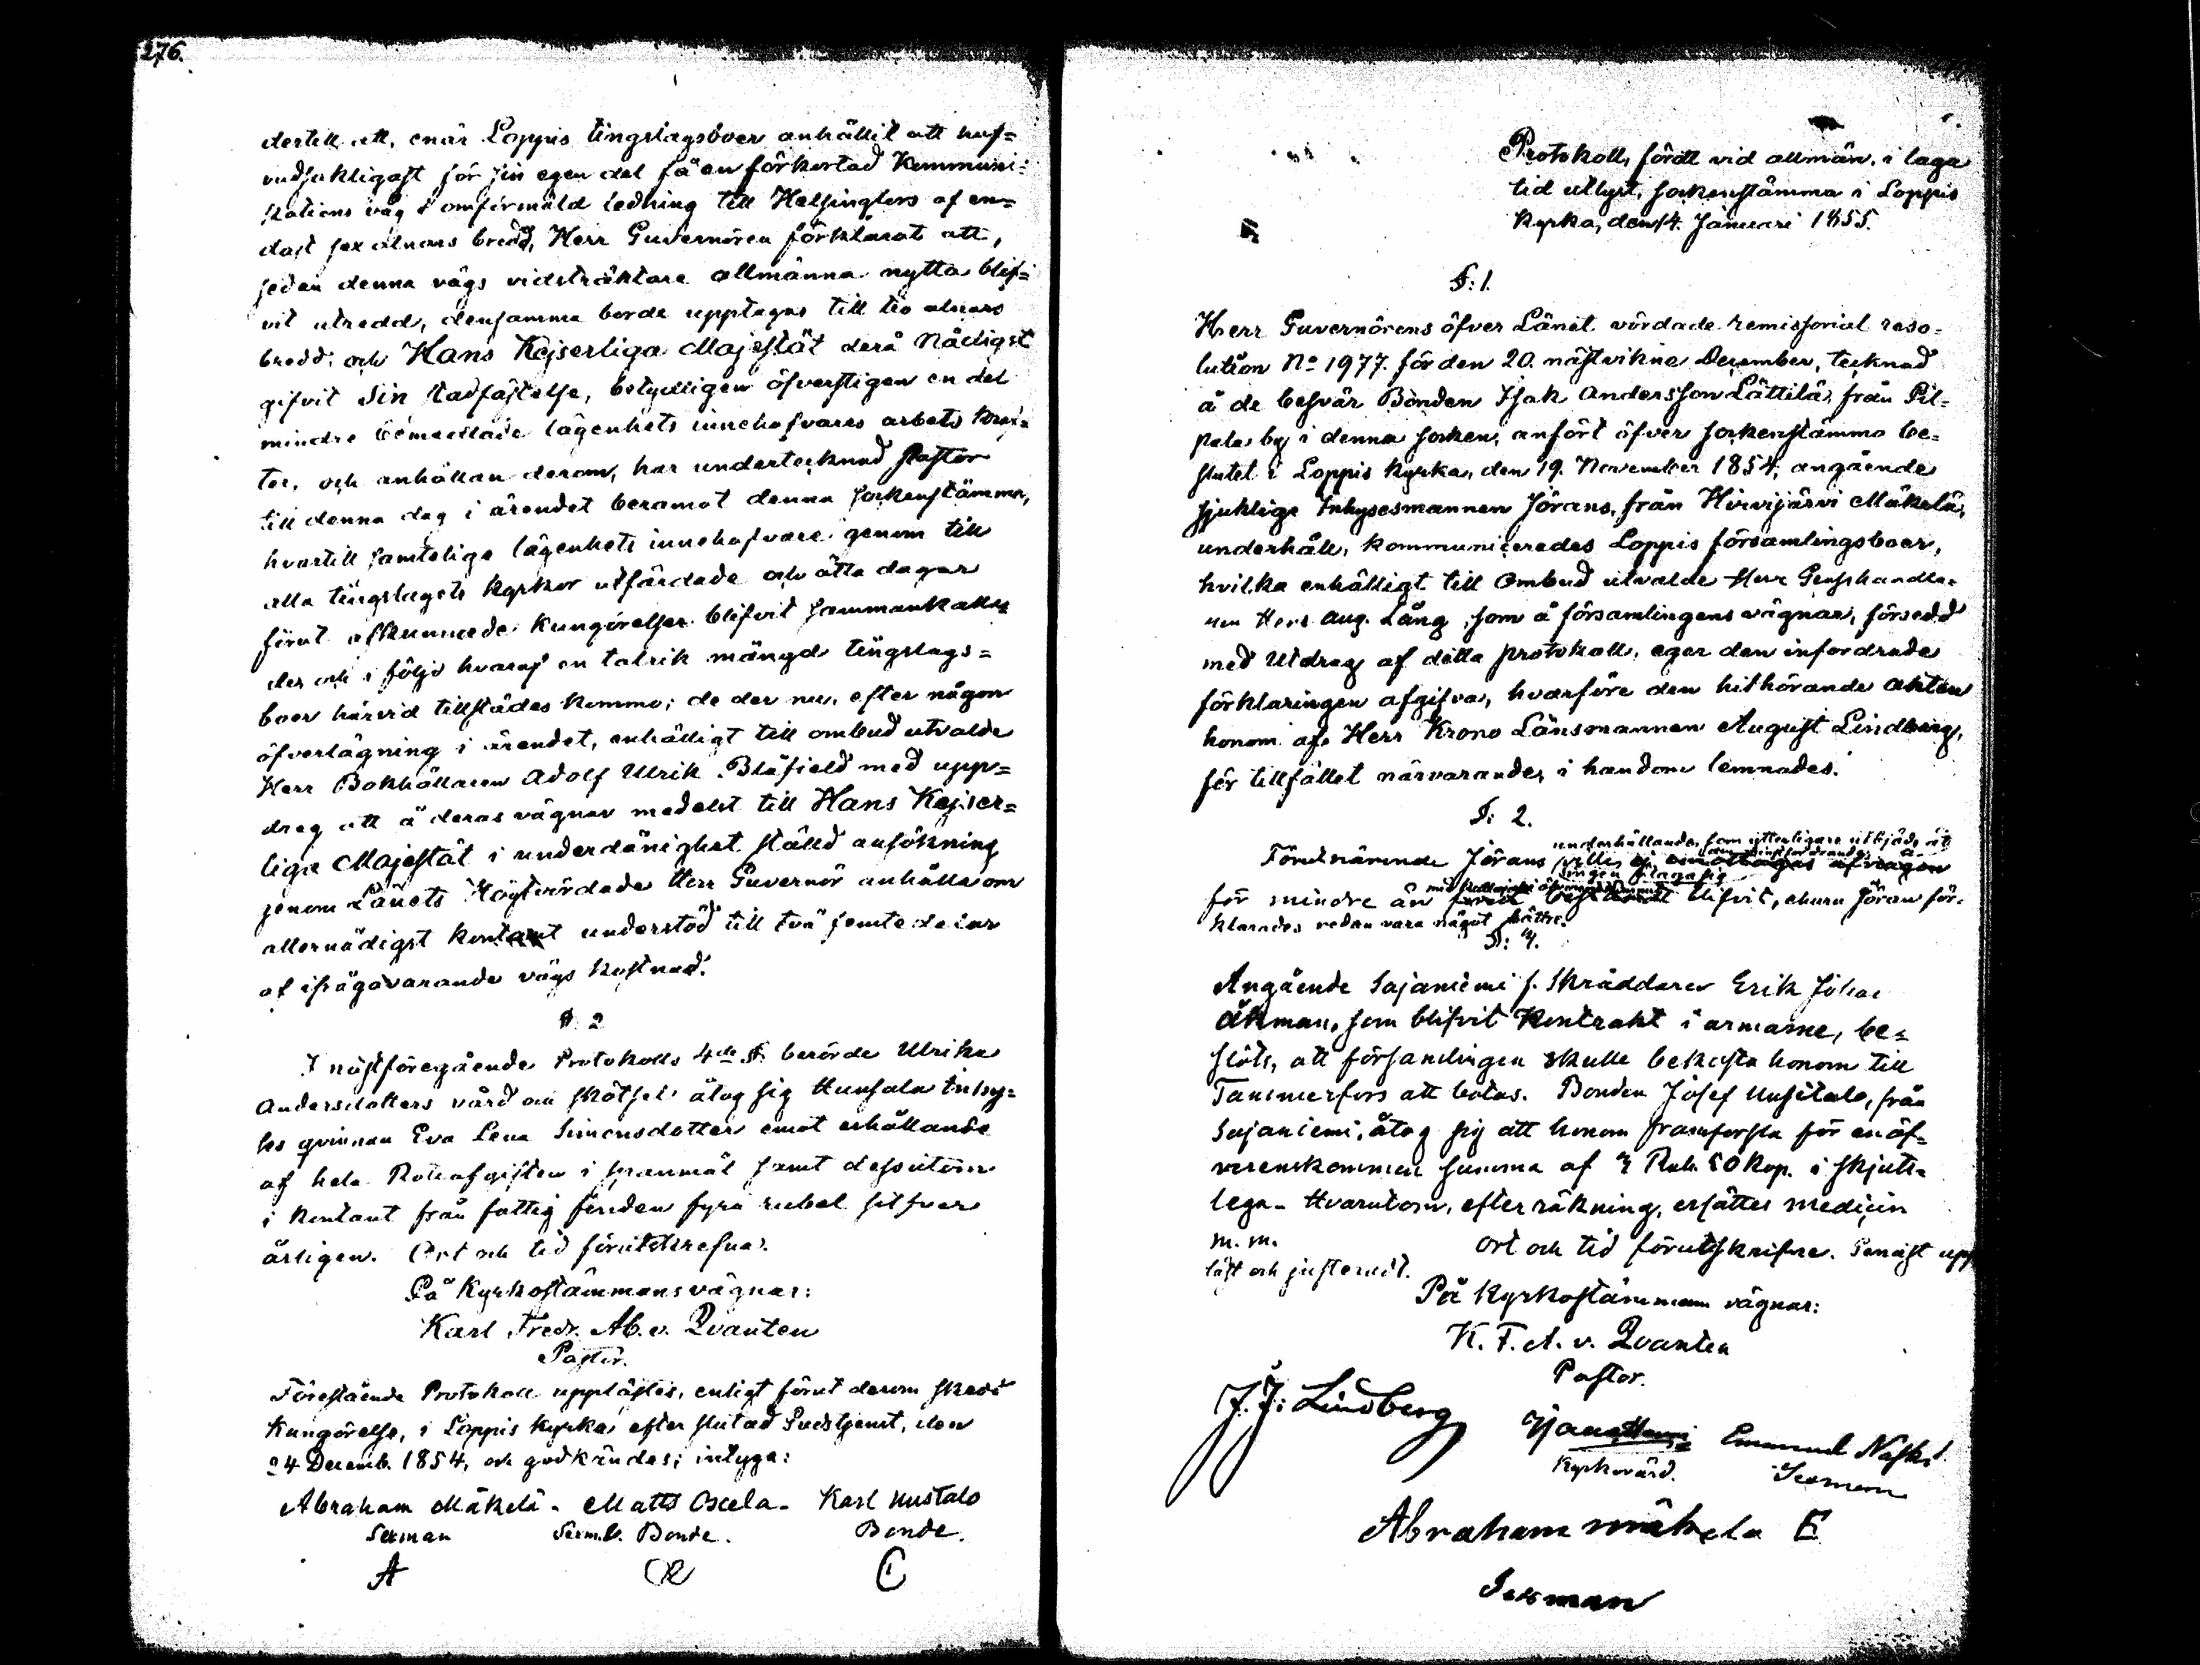 276.
dertill att, enär Loppis tingslagsboer anhållit att huf=
vudsakligast för sin egen del få en förkortad Kommuni=
kations väg i omförmäld ledning till Helsingfors af en=
dast sex alnars bredd, Herr Guvernören förklarat att,
sedan denna vägs vidsträktare allmänna nytta blif=
vit utredd, densamma borde upptagas till tio alnars
bredd; och Hans Kejserliga Majestät derå Nådigst
gifvit Sin Stadfästelse, betydligen öfverstigen en del
mindre bemedlade lägenhets innehafvares arbets kraf=
ter, och anhållan derom, har undertecknad Pastor
till denna dag i ärendet beramat denna sockenstämma,
hvartill samtelige lägenhets innehafvare genom till
alla tingslagets kyrkor utfärdade och åtta dagar
förut afkunnade kungörelser blifvit sammankalla=
der och i följd hvaraf en talrik mängd tingslags=
boer härvid tillstädes kommo; de der nu, efter någon
öfverlägning i ärendet, enhälligt till ombud utvalde
Herr Bokhållaren Adolf Ulrik Blåfield med upp=
drag att å deras vägnar medelst till Hans Kejser=
liga Majestät i underdånighet ställd ansökning
genom Länets Högtvördade Herr Guvernör anhålla om
allernådigst kontant understöd till två femtedelar
af ifrågavarande vägs kostnad.
§. 2
I nästföregående Protokolls 4de §. berörde Ulrika
Andersdotters vård och skötsel åtog sig Hunsala inhy=
ses qvinnan Eva Lena Simonsdotter emot erhållande
af hela Roteafgiften i spanmål samt dessutom
i kontant från fattig fonden fyra rubel silfver
årligen. Ort och tid förutskrefna.
På Kyrkostämmans vägnar:
Karl Fredr. Ab. v. Qvanten
Pastor.
Förestående Protokoll upplästes, enligt förut derom skedd
Kungörelse, i Loppis kyrka efter slutad Gudstjenst, den
24 Decemb. 1854, och godkändes; intyga:
Abraham Mäkelä - Matts Oxela - Karl Uustalo
Sexman Sexm. Bonde. Bonde.
A C
Protokoll, fördt vid allmän, i laga
tid utlyst, sockenstämma i Loppis
Kyrka, den 14. Januari 1855.
§: 1.
Herr Guvernörens öfver Länet vördade remissorial reso=
lution No 1977. för den 20. nästvikne December, tecknad
å de besvär Bonden Isak Andersson Lättilä, från Pil=
pala by i denna socken, anfört öfver sockenstämmo be=
slutet i Loppis Kyrka, den 19. November 1854, angående
sjuklige Inhysesmannen Jörans, från Hirvijärvi Mäkelä,
underhåll, kommunicerades Loppis församlingsboer,
hvilka enhälligt till Ombud utvalde Herr Gensshandla=
ren Herr Aug. Lång, som å församlingens vägnar, försedd
med Utdrag af detta protokoll, eger den infordrade
förklaringen afgifva, hvarföre den hithörande akten
honom af Herr Krono Länsmannen August Lindberg,
för tillfället närvarande, i handom lemnades.
§: 2.
underhållande, som ytterligare utbjöds åt
Förutnämnde Jörans ville ej emottagas af någon
ingen åtaga sig
för mindre än förut bestämdt blifvit, ehuru Jöran för=
klarades redan vara något bättre.
§: 4.
Angående Sajaniemi s. Skräddaren Erik Johan
Åkman, som blifvit Kontrakt i armarne, be=
slöts, att församlingen skulle bekosta honom till
Tammerfors att botas. Bonden Josef Uusitalo, från
Sajaniemi, åtog sig att honom framforsla för en öf=
verenskommen summa af 3 Rub. 50 Kop. i skjuts=
lega - Hvarutom, efter räkning, ersättes medicin
m. m. Ort och tid förutskrifne. Genast upp
läst och justeradt.
På Kyrkostämmans vägnar:
K. F. A. v. Qvanten
Pastor.
J. J: Lindberg
Kyrkovärd.
Emanuel Naski
Sexman
Abraham mäkela E
Sexman